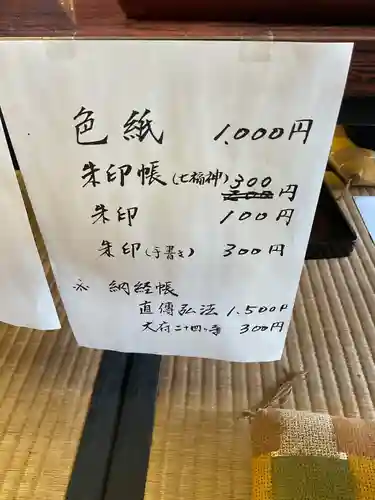 色紙 1,000円
朱印帳(七福神) 300円
朱印 100円
朱印(手書き) 300円
納経帳
直傳弘法 1,500円
大府二十四ヶ寺 300円